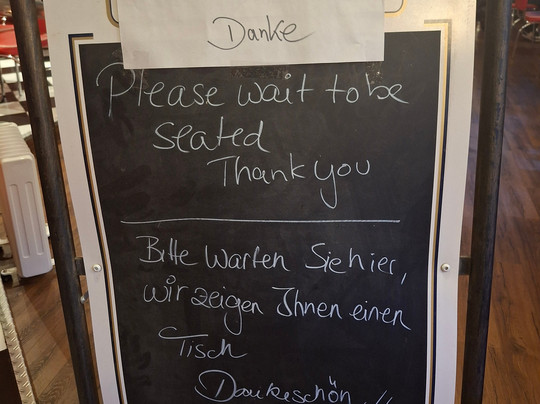 Danke
Please wait to be
seated
Thank you
Bitte warten Sie hier,
wir zeigen Ihnen einen
Tisch
Dankeschön !!